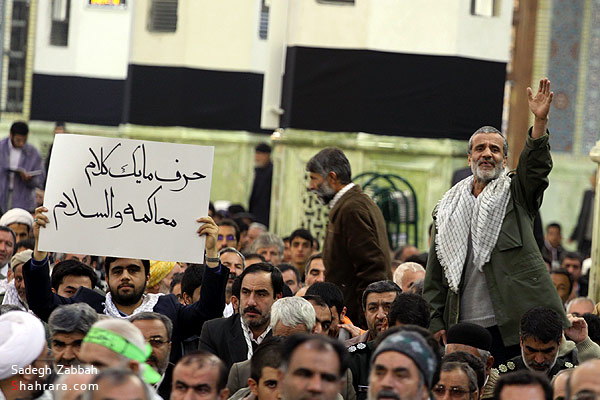 حرف ما یک کلام
محاکمه والسلام
Sadegh Zabbah
hahrara.com